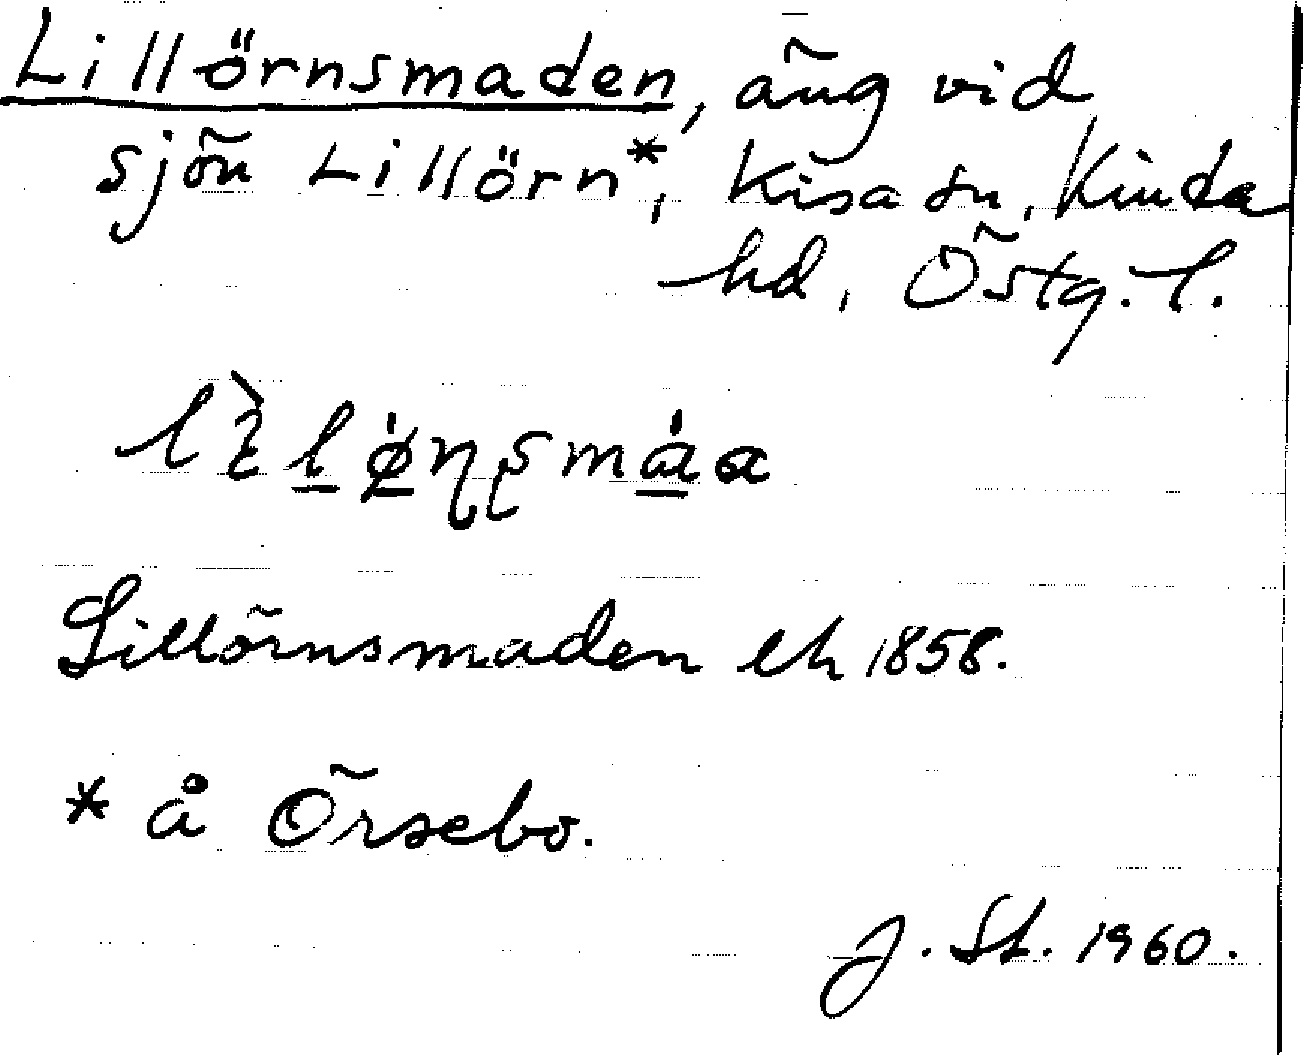 Lillörnsmaden, äng vid
sjön Lillörn*, Kisa sn, Kinda
hd, Östg. l.
Lillörnsmaden ek 1858.
* å Örsebo.
J. St. 1960.